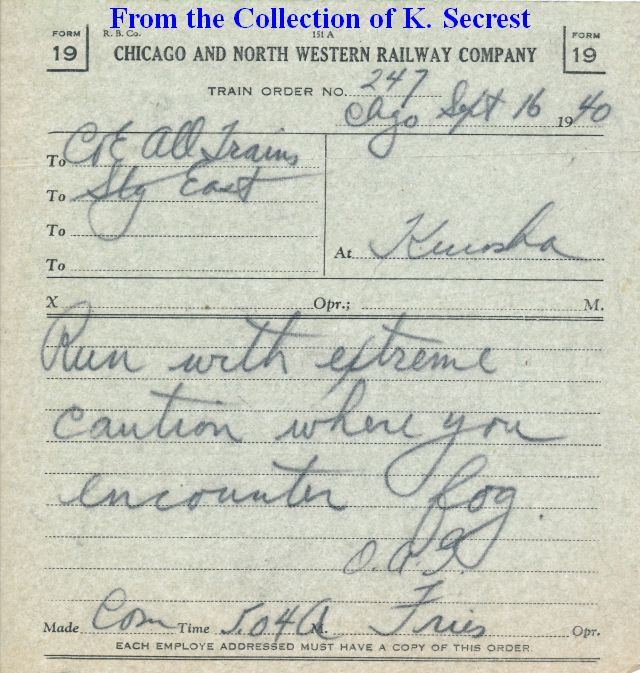 From the Collection of K. Secrest
FORM 19
R. B. Co.
151 A
FORM 19
CHICAGO AND NORTH WESTERN RAILWAY COMPANY
TRAIN ORDER NO. 247
Chgo Sept 16 1940
To C&E All Trains
To Stg East
To
To
At Kenosha
X Opr.; M.
Run with extreme
caution where you
encounter fog.
Made Com Time 5.04 A M. Fries Opr.
EACH EMPLOYE ADDRESSED MUST HAVE A COPY OF THIS ORDER.